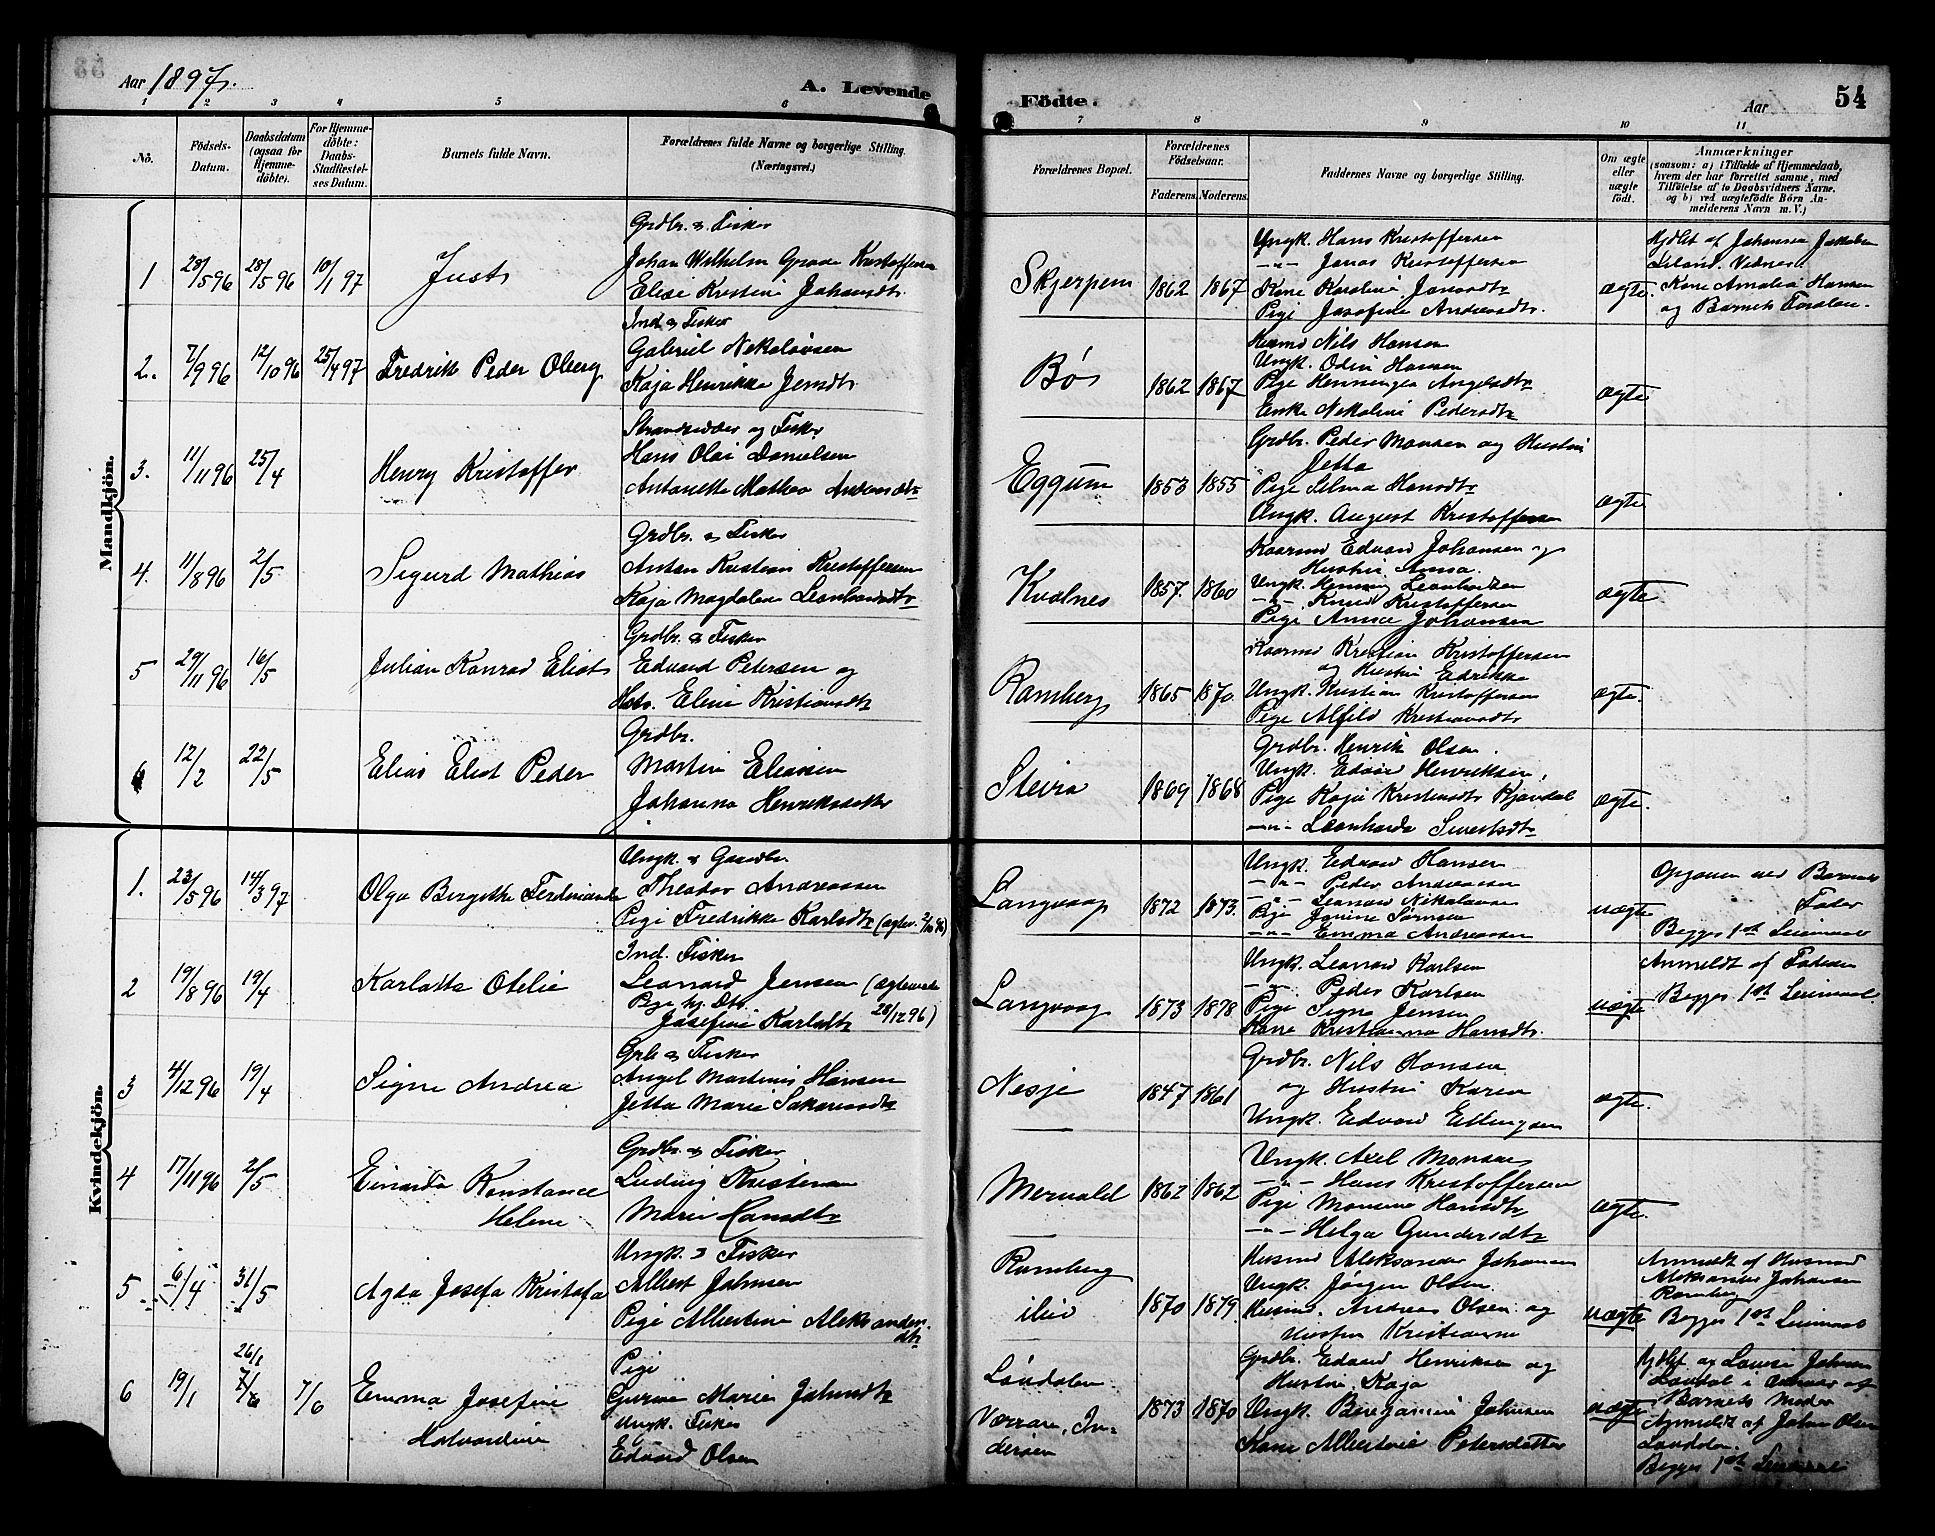 Aar 1897.
A. Levende
Födte.
Aar
54
1 2 3 4 5 6 7 8 9 10 11
No.
Födsels-
Datum.
Daabsdatum
(ogsaa for
Hjemme-
döbte).
For Hjemme-
döbte:
Daabs-
Stadfæstel-
ses Datum.
Barnets fulde Navn.
Forældrenes fulde Navne og borgerlige Stilling.
(Næringsvei.)
Forældrenes Bopæl.
Forældrenes
Födselsaar.
Faderens. Moderens.
Faddernes Navne og borgerlige Stilling.
Om ægte
eller
uægte
födt.
Anmærkninger
(saasom: a) i Tilfælde af Hjemmedaab,
hvem der har forrettet samme, med
Tilföielse af to Daabsvidners Navne.
og b) ved uægtefödte Börn An-
melderens Navn m. V.)
Mandkjön.
1
28/5 96
28/5 96
10/1 97
Just
Grdbr. & Fisker
Johan Wilhelm Grade Kristoffersen
Elise Kristine Johansdtr.
Skjerpen
1862 1867
Ungk. Hans Kristoffersen
—"— Jonas Kristoffersen
Kone Karoline Jonsdtr
Pige Josefine Andreasdtr.
ægte.
Hjdbt af Johanna Jakobsen
Vidner:
Kone Amalia Hansen
og Barnets Forældre.
2.
7/9 96
12/10 96
25/4 97
Fredrik Peder Olberg
Ind. & Fisker
Gabriel Nikolaisen
Kaja Henrikke Jensdtr.
Bøs
1862 1867
Husmd Nils Hansen
Ungk. Odin Hansen
Pige Henninga Angelsdtr
Enke Nikoline Pedersdtr
ægte
3.
11/11 96
25/4
Henry Kristoffer
Strandsidder og Fisker
Hans Olai Danielsen
Antonette Mathea Andreasdtr
Eggum
1853 1855
Grdbr. Peder Monsen og Hustru
Jetta
Pige Selma Hansdtr
Ungk. August Kristoffersen
ægte
4.
11/8 96
2/5
Sigurd Mathias
Grdbr. & Fisker
Anton Kristian Kristoffersen
Kaja Magdalena Leonhardsdtr
Kvalnes
1857. 1860
Kaarmd Edvard Johansen og
Hustru Anna.
Ungk. Henning Leonhardsen
—"— Knud Kristoffersen
Pige Anna Johansen
ægte
5
29/11 96
16/5
Julian Konrad Eliot
Grdbr. & Fisker
Edvard Petersen og
Hstr. Eline Kristiansdtr
Ramberg
1865 1870.
Kaarmd Kristian Kristoffersen
og Hustru Edrikke
Ungk. Kristian Kristoffersen
Pige Alfild Kristiansdtr
ægte.
6
12/2
22/5
Elias Eliot Peder
Grdbr.
Martin Eliassen
Johanna Henriksdatter
Steira
1869 1868
Grdbr. Henrik Olsen.
Ungk. Edvard Henriksen,
Pige Kaja Kristiansdtr Kjøndal
—"— Leonharda Sivertsdtr
ægte.
Kvindekjön.
1.
23/5 96
14/3 97
Olga Bergitte Ferdinanda
Ungk. & Gaardbr.
Theodor Andreassen
Pige Fredrikke Karlsdtr
Langvaag
1872 1873.
Ungk. Edvard Hansen
—"— Peder Andreassen
—"— Leonard Nikolaisen
Pige Janine Sørensen
—"— Emma Andreassen
uægte
Opgaven ved Barnets
Fader
Begges 1ste Leiermaal
2
19/8 96
19/4
Karlotta Otelie
Ind. Fisker
Leonard Jensen (ægteviede
Pige hj. Dtr. 28/12 96)
Josefine Karlsdtr
Langvaag
1873 1878
Ungk. Leonard Karlsen
—"— Peder Karlsen
Pige Signe Jensen
Kone Kristianna Hansdtr.
uægte
Anmeldt af Faderen
Begges 1ste Leiermaal
3
4/12 96
19/4
Signe Andrea
Grb & Fisker
Angel Martinus Hansen
Jetta Marie Sakariasdtr
Nesje
1847 1861
Grdbr. Nils Hansen
og Hustru Karen
Ungk. Edvard Ellingsen
ægte.
4
17/11 96
2/5
Einarda Konstance
Helene
Grdbr. & Fisker
Ludvig Kristensen
Marie Hansdtr
Mervald
1862 1862
Ungk. Axel Monsen
—"— Hans Kristoffersen
Pige Monsine Hansdtr
—"— Helga Gundersdtr
ægte.
5
6/4
31/5
Agda Josefa Kristofa
Ungk. & Fisker
Albert Johnsen
Pige Albertine Aleksanders-
dtr
Ramberg
1870 1879.
Husmd Aleksander Johansen
Ungk. Jørgen Olsen.
Husmd. Andreas Olsen og
Hustru Kristianne
uægte
Anmeldt af Husmd
Aleksander Johansen
Ramberg
Begges 1ste Leiermaal
6
19/1
26/1
7/6
7/6
Emma Josefine
Halvardine
Pige
Gurine Marie Johnsdtr
Ungk. Fisker
Edvard Olsen
Løvdalen
Værran, In-
derøen
1873 1870
Grdbr. Edvard Henriksen og
Hustru Kaja
Ungk. Benjamin Johnsen
Kone Albertine Petersdatter
uægte
Hjdbt af Lovise Johnsen
Løvdal
Barnets Moder
Anmeldt af Johan Olsen
Løvdalen.
Begges 1ste Leiermaal